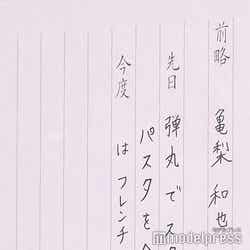 前略 亀梨 和也
先日 弾丸でス
パスタを
今度 はフレンチ
モデルプレス
modelpress